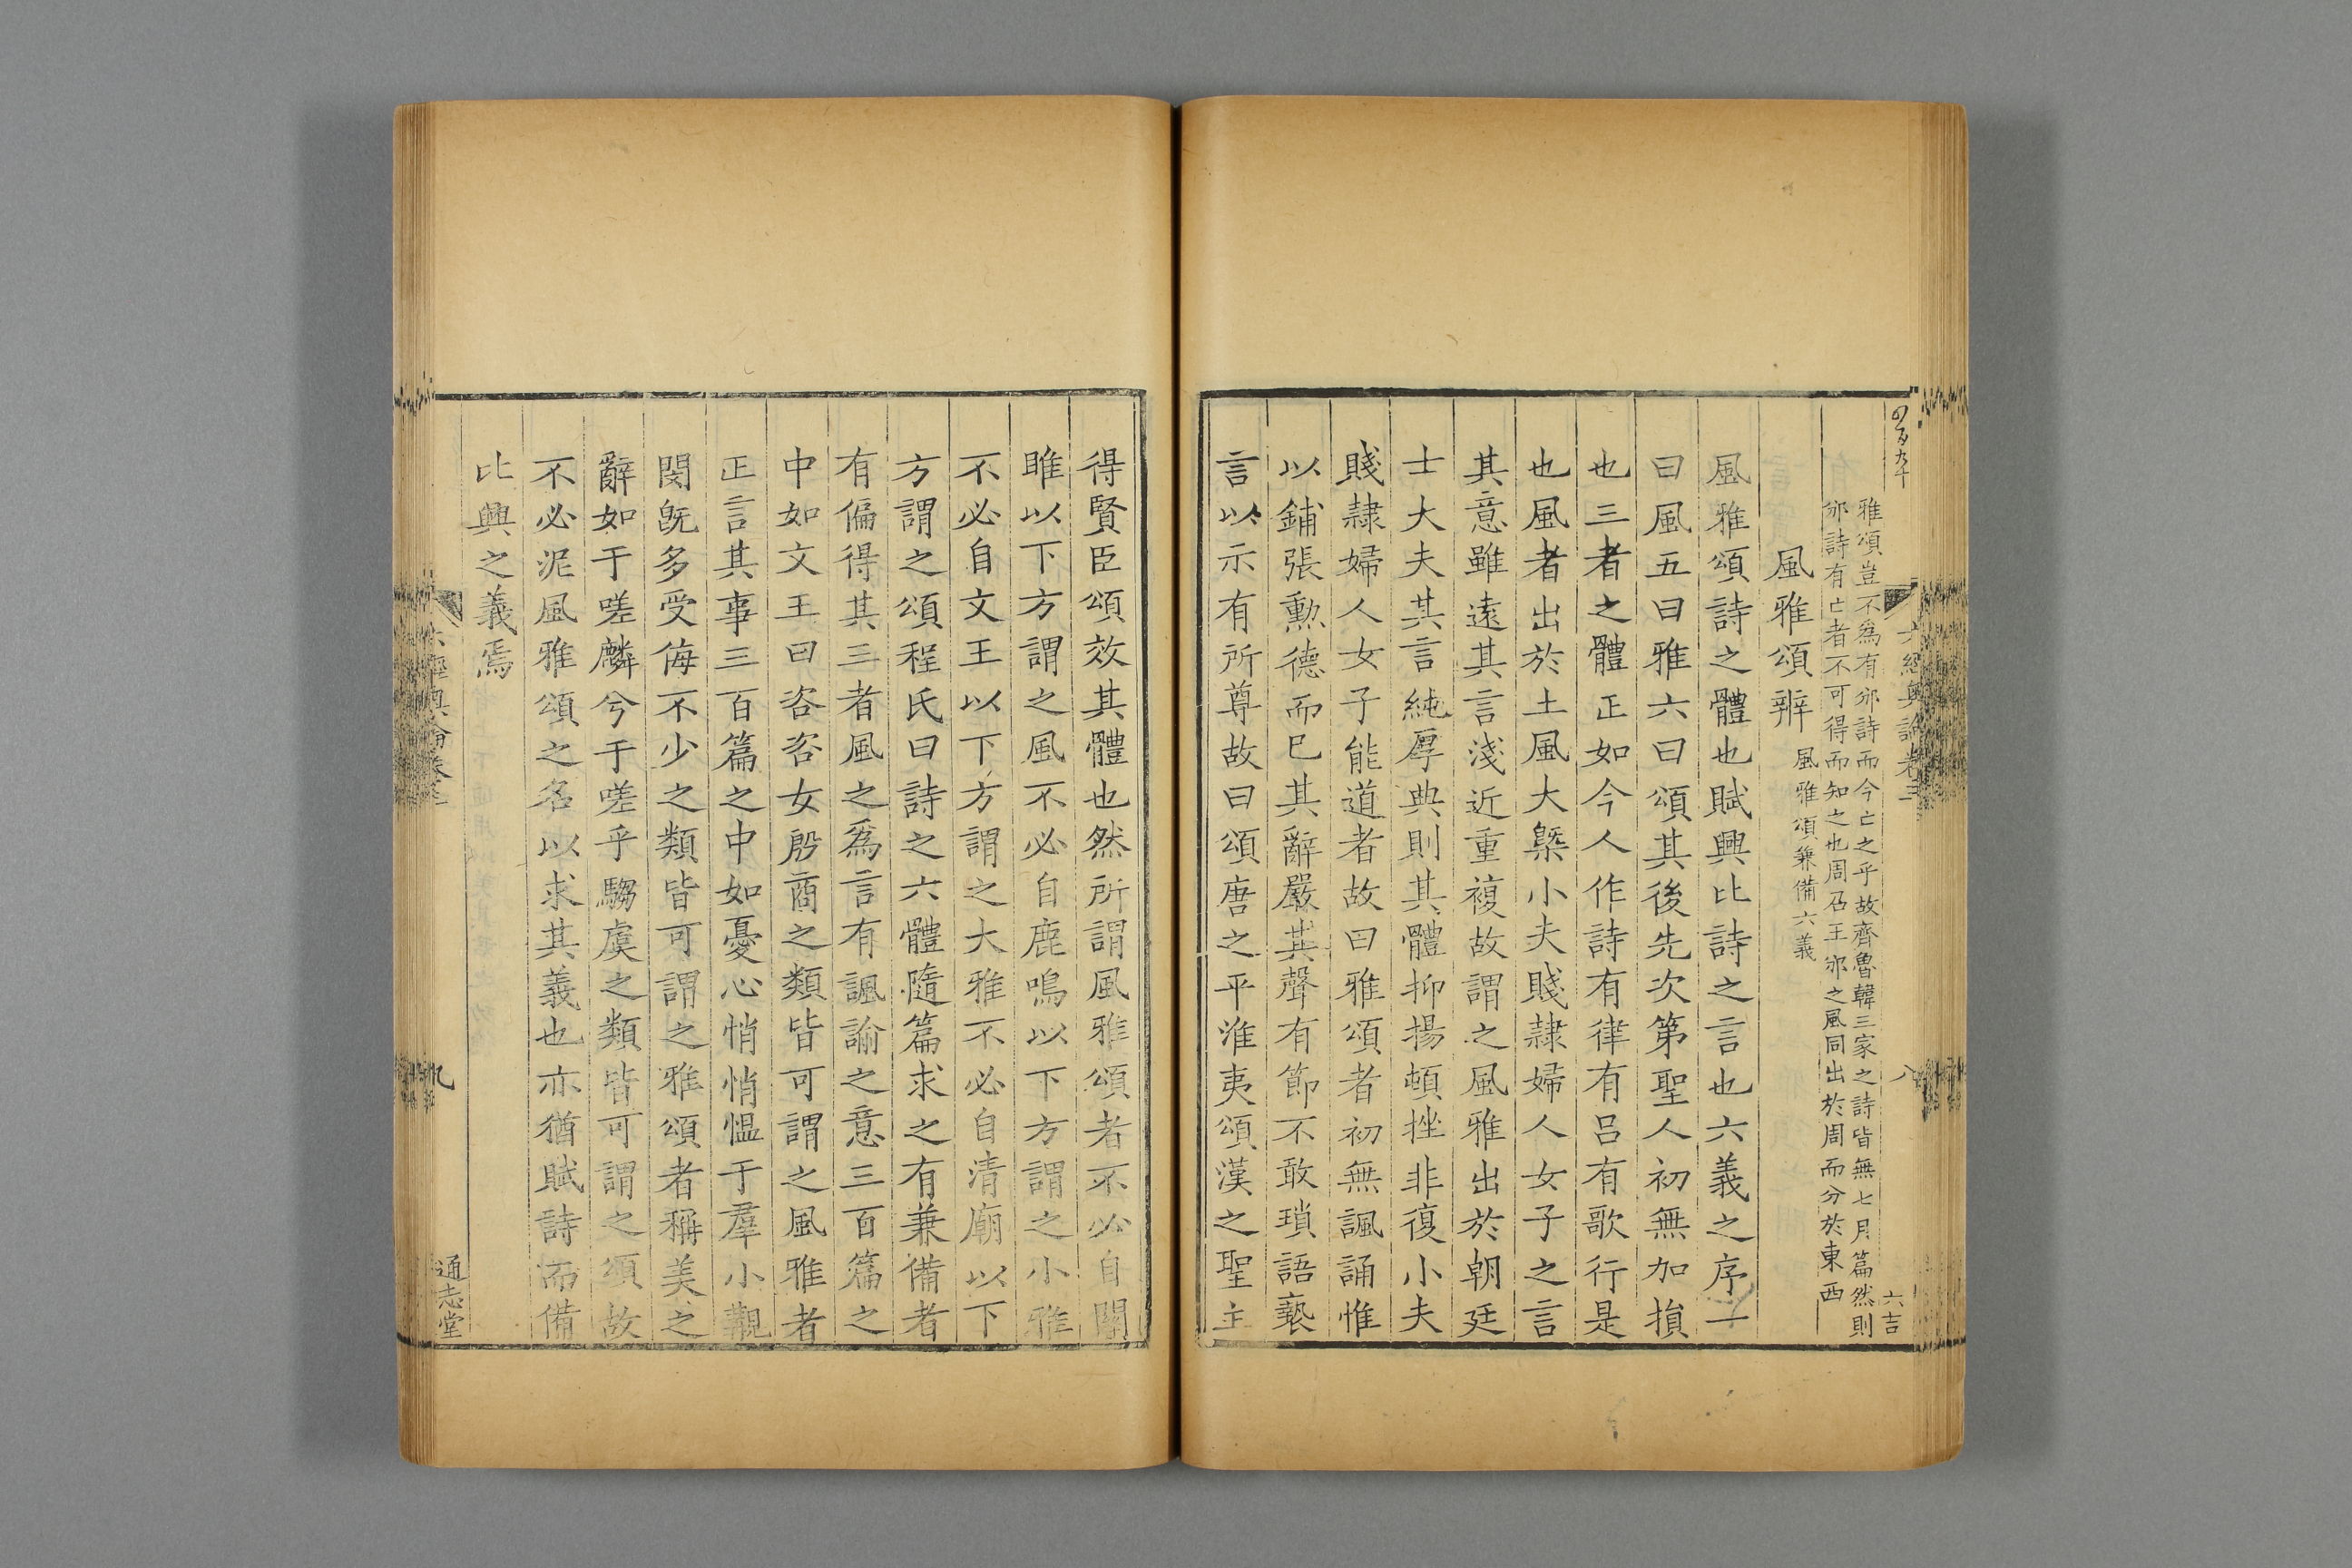 六經奧論卷三
八
六吉
雅頌豈不為有邠詩而今亡之乎故齊魯韓三家之詩皆無七月篇然則
邠詩有亡者不可得而知之也周召王邠之風同出於周而分於東西
風雅頌辨 風雅頌兼備六義
風雅頌詩之體也賦興比詩之言也六義之序一
曰風五曰雅六曰頌其後先次第聖人初無加損
也三者之體正如今人作詩有律有呂有歌行是
也風者出於土風大槩小夫賤隷婦人女子之言
其意雖遠其言淺近重複故謂之風雅出於朝廷
士大夫其言純厚典則其體抑揚頓挫非復小夫
賤隷婦人女子能道者故曰雅頌者初無諷誦惟
以鋪張勲德而已其辭嚴其聲有節不敢瑣語褻
言以示有所尊故曰頌唐之平淮夷頌漢之聖主
得賢臣頌效其體也然所謂風雅頌者不必自關
雎以下方謂之風不必自鹿鳴以下方謂之小雅
不必自文王以下方謂之大雅不必自清廟以下
方謂之頌程氏曰詩之六體隨篇求之有兼備者
有偏得其三者風之為言有諷諭之意三百篇之
中如文王曰咨咨女殷商之類皆可謂之風雅者
正言其事三百篇之中如憂心悄悄慍于羣小覯
閔旣多受侮不少之類皆可謂之雅頌者稱美之
辭如于嗟麟兮于嗟乎騶虞之類皆可謂之頌故
不必泥風雅頌之名以求其義也亦猶賦詩而備
比興之義焉
六經奧論卷三
九
通志堂